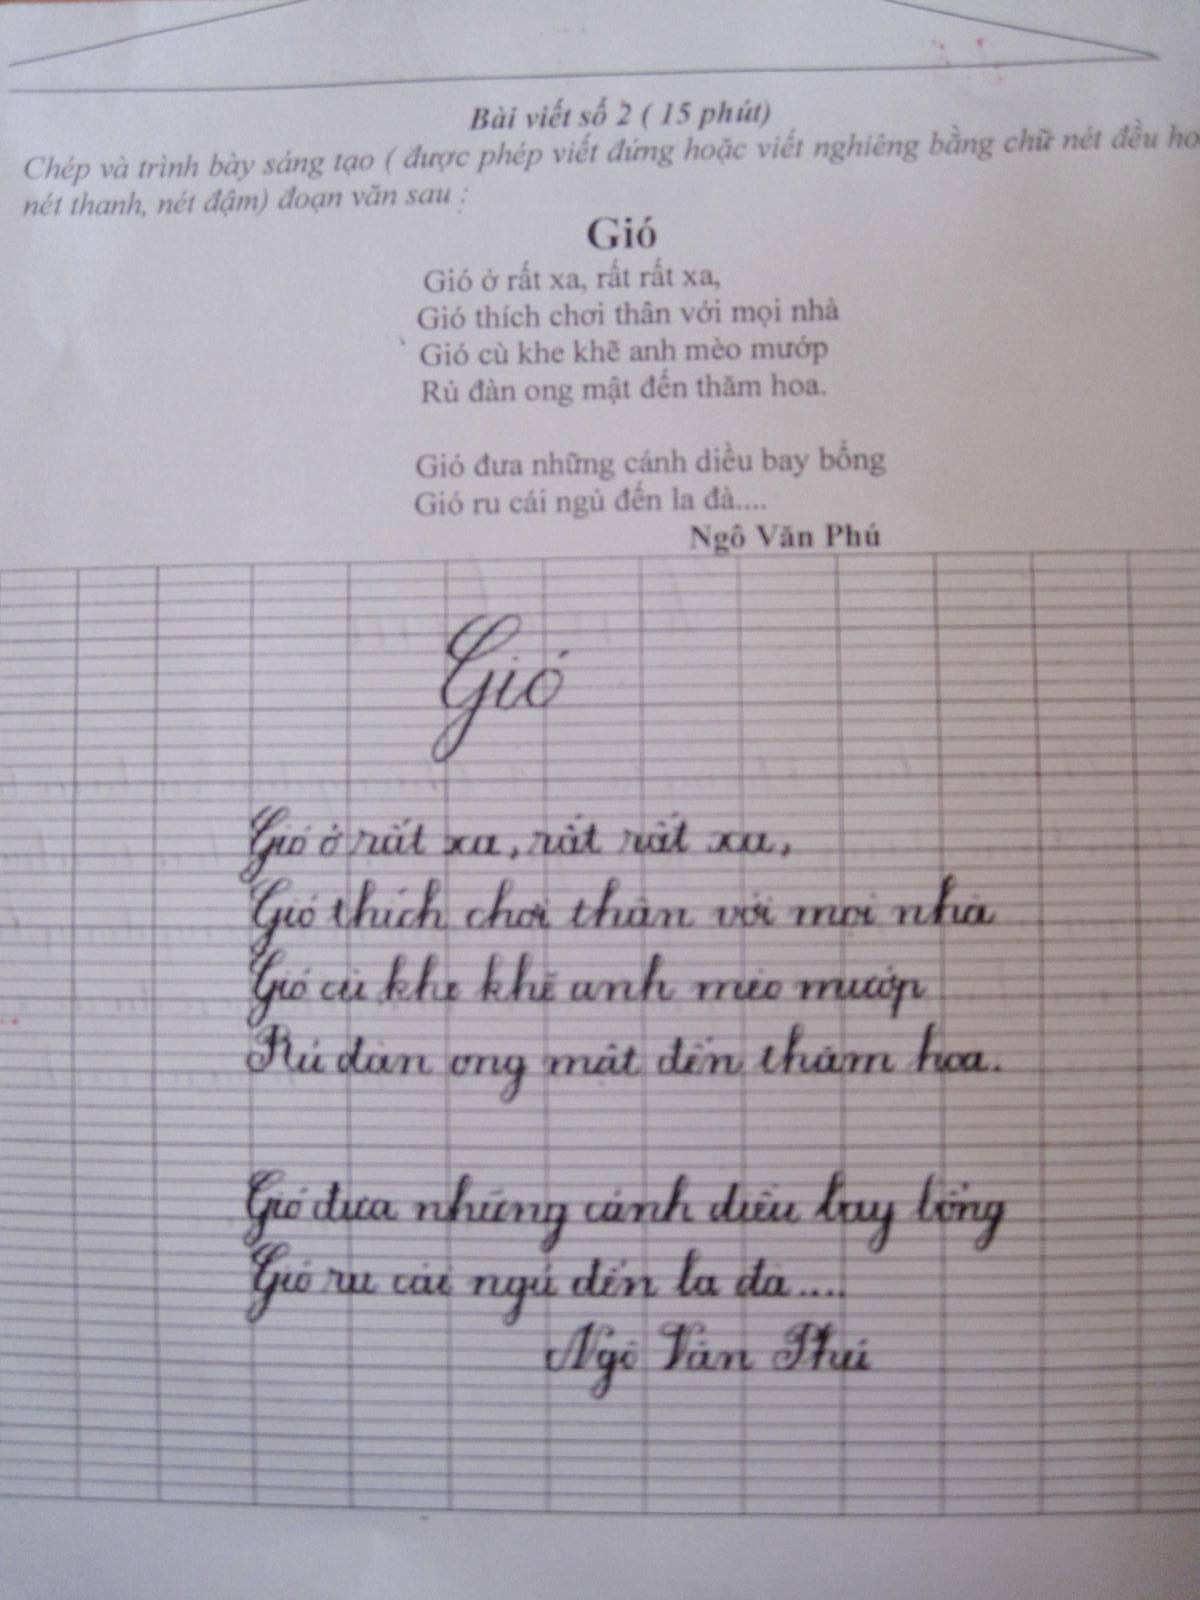 Bài viết số 2 ( 15 phút)
Chép và trình bày sáng tạo ( được phép viết đứng hoặc viết nghiêng bằng chữ nét đều ho
nét thanh, nét đậm) đoạn văn sau :
Gió
Gió ở rất xa, rất rất xa,
Gió thích chơi thân với mọi nhà
Gió cù khe khẽ anh mèo mướp
Rủ đàn ong mật đến thăm hoa.
Gió đưa những cánh diều bay bổng
Gió ru cái ngủ đến la đà....
Ngô Văn Phú
Gió
Gió ở rất xa, rất rất xa,
Gió thích chơi thân với mọi nhà
Gió cù khe khẽ anh mèo mướp
Rủ đàn ong mật đến thăm hoa.
Gió đưa những cánh diều bay bổng
Gió ru cái ngủ đến la đà....
Ngô Văn Phú